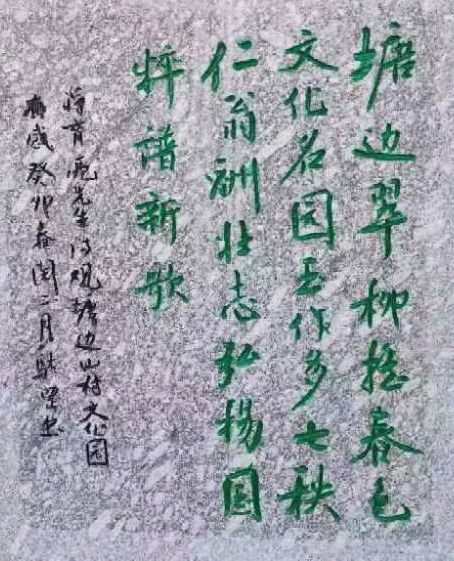 塘边翠柳摇春色
文化名园玉作多七秩
仁翁酬壮志弘揚国
粹譜新歌
育先生观塘边山村文化园
有感癸卯春闰二月书